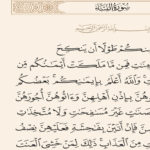 سُورَةُ النِّسَاء
مِنكُمْ طَوْلًا أَن يَنكِحَ
فَمِن مَّا مَلَكَتْ أَيْمَٰنُكُم مِّن
وَٱللَّهُ أَعْلَمُ بِإِيمَٰنِكُم بَعْضُكُم
بِإِذْنِ أَهْلِهِنَّ وَءَاتُوهُنَّ أُجُورَهُنَّ
غَيْرَ مُسَٰفِحَٰتٍ وَلَا مُتَّخِذَٰتِ
فَإِنْ أَتَيْنَ بِفَٰحِشَةٍ فَعَلَيْهِنَّ نِصْفُ
مِنَ ٱلْعَذَابِ ذَٰلِكَ لِمَنْ خَشِيَ ٱلْعَنَتَ